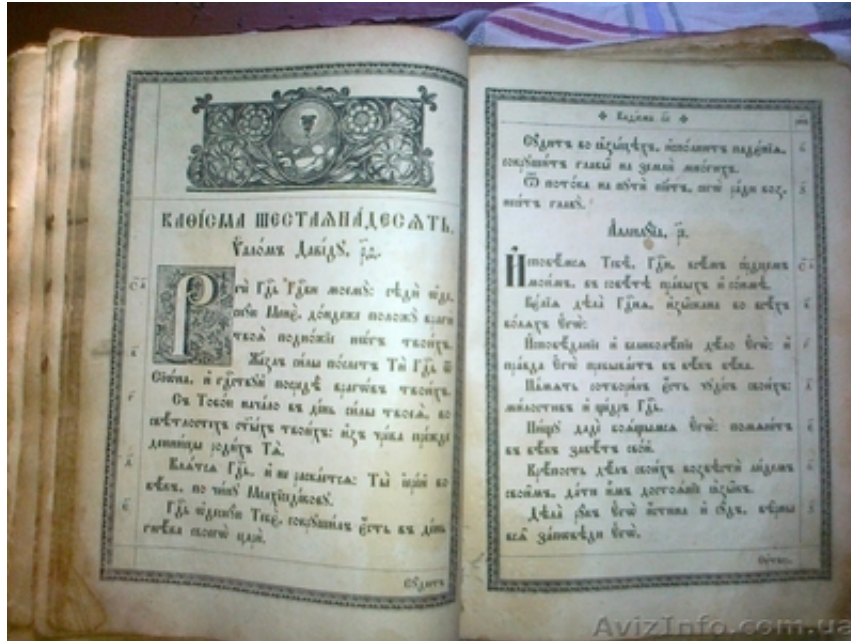 КАѲІСМА ШЕСТАЯНАДЕСЯТЬ.
Ѱало́мъ Даві́ду, р҃ѳ.
Речѐ Гдⷭ҇ь Гдⷭ҇ви моему̀: сѣдѝ ѡ҆де
сну́ю Менє̀, до́ндеже положу̀ враги̑
твоѧ̑ подно́жїе но́гъ твои́хъ.
Же́злъ си́лы по́слетъ Тѝ Гдⷭ҇ь ѿ
Сїѡ́на, и҆ гдⷭ҇ствуй посредѣ̀ врагѡ́въ твои́хъ.
Съ Тобо́ю нача́ло въ де́нь си́лы твоеѧ̀, во
свѣ́тлостехъ ст҃ы́хъ твои́хъ: и҆зъ чре́ва пре́жде
денни́цы роди́хъ Тѧ̀.
Клѧ́тсѧ Гдⷭ҇ь, и҆ не раска́етсѧ: Ты̀ і҆ере́й во
вѣ́къ, по чи́ну Мелхїседе́кову.
Гдⷭ҇ь ѡ҆десну́ю Тебє̀, сокруши́лъ є҆́сть въ де́нь
гнѣ́ва своегѡ̀ цари̑.
Сꙋ́дитъ
Каѳі́сма
Сꙋ́дитъ во ꙗ҆зы́цѣхъ, и҆спо́лнитъ падє́нїѧ,
сокруши́тъ главы̑ на землѝ мно́гихъ.
Ѿ пото́ка на путѝ пїе́тъ, сегѡ̀ ра́ди воз
несе́тъ главу̀.
А҆ллилꙋ́їа,
И҆сповѣ́мсѧ Тебѣ̀, Гдⷭ҇и, всѣ́мъ се́рдцемъ
мои́мъ, въ совѣ́тѣ пра́выхъ и҆ со́нмѣ.
Вє́лїѧ дѣла̀ Гдⷭ҇нѧ, и҆зы̑скана во всѣ́хъ
во́лѧхъ Є҆гѡ̀:
И҆сповѣ́данїе и҆ великолѣ́пїе дѣ́ло Є҆гѡ̀: и҆
пра́вда Є҆гѡ̀ пребыва́етъ въ вѣ́къ вѣ́ка.
Па́мѧть сотвори́лъ є҆́сть чуде́съ свои́хъ:
ми́лостивъ и҆ ще́дръ Гдⷭ҇ь.
Пи́щу дадѐ боѧ́щымсѧ Є҆гѡ̀: помѧне́тъ
въ вѣ́къ завѣ́тъ сво́й.
Крѣ́пость дѣ́лъ свои́хъ возвѣстѝ лю́демъ
свои̑мъ, да́ти и҆̀мъ достоѧ́нїе ꙗ҆зы̑къ.
Дѣла̀ ру́къ Є҆гѡ̀ и҆́стина и҆ су́дъ, вѣ̑рны
всѧ̑ за́пѡвѣди Є҆гѡ̀.
AvizInfo.com.ua